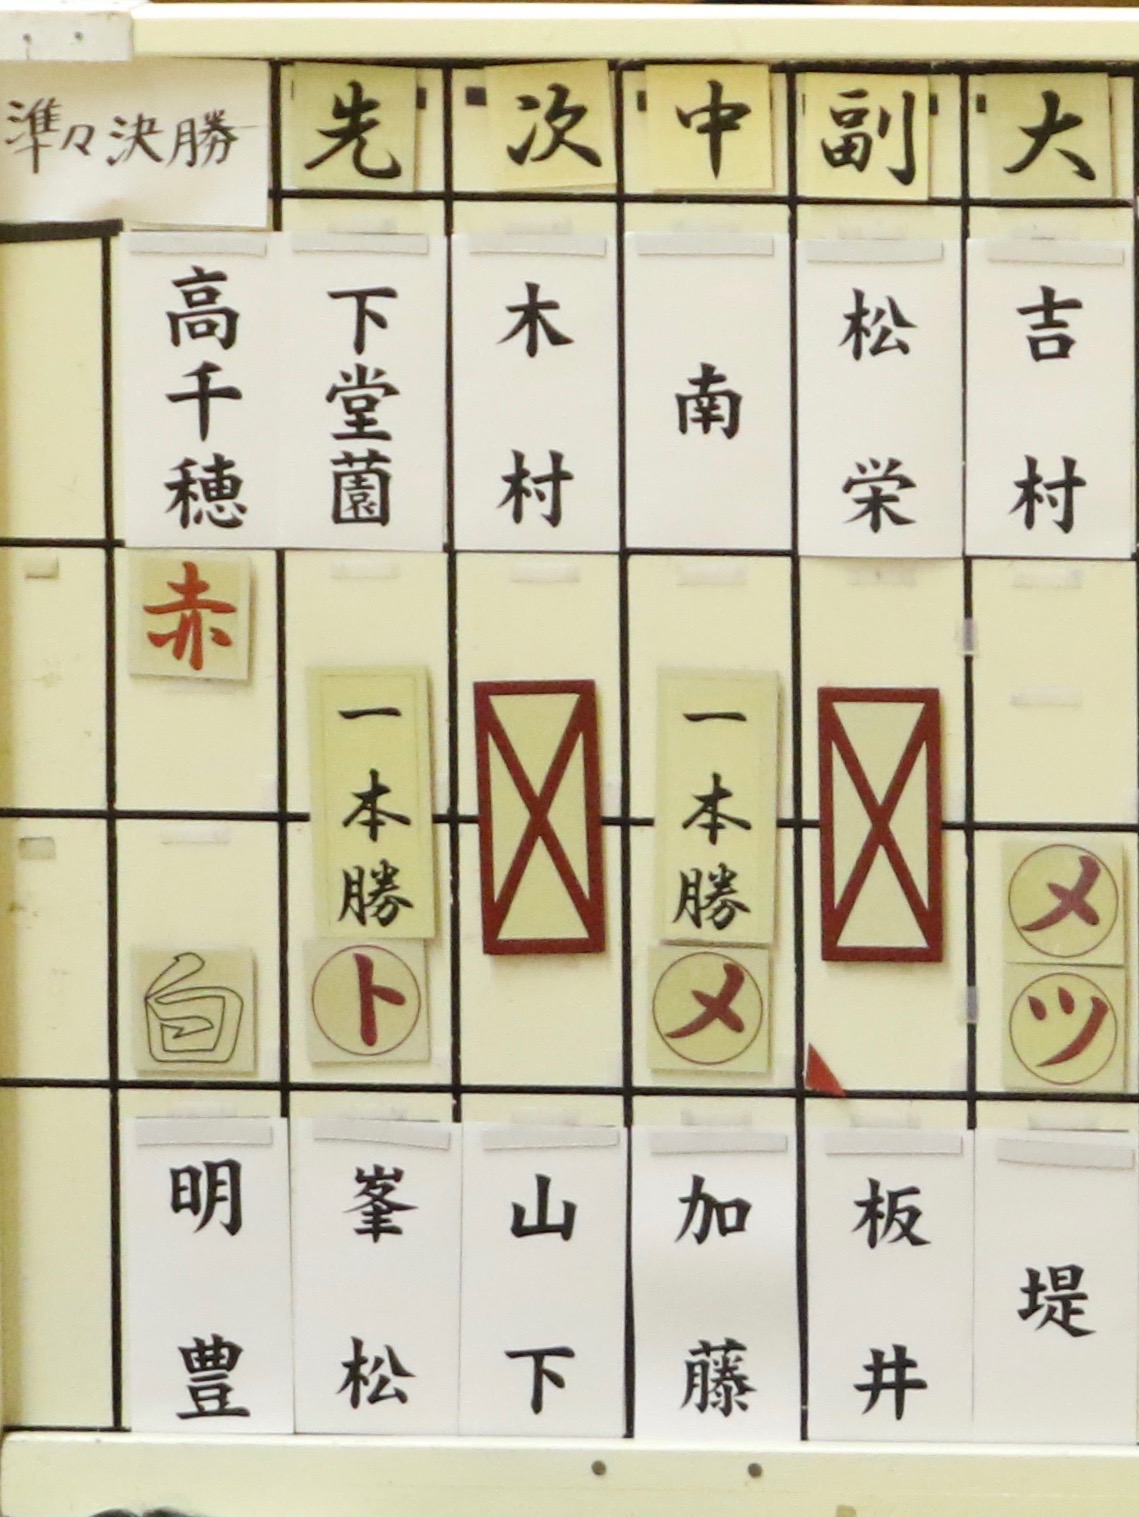 準々決勝
先 次 中 副 大
高千穂 下堂園 木村 南 松栄 吉村
赤
一本勝 一本勝
メ
白 ト メ ツ
明豊 峯松 山下 加藤 板井 堤